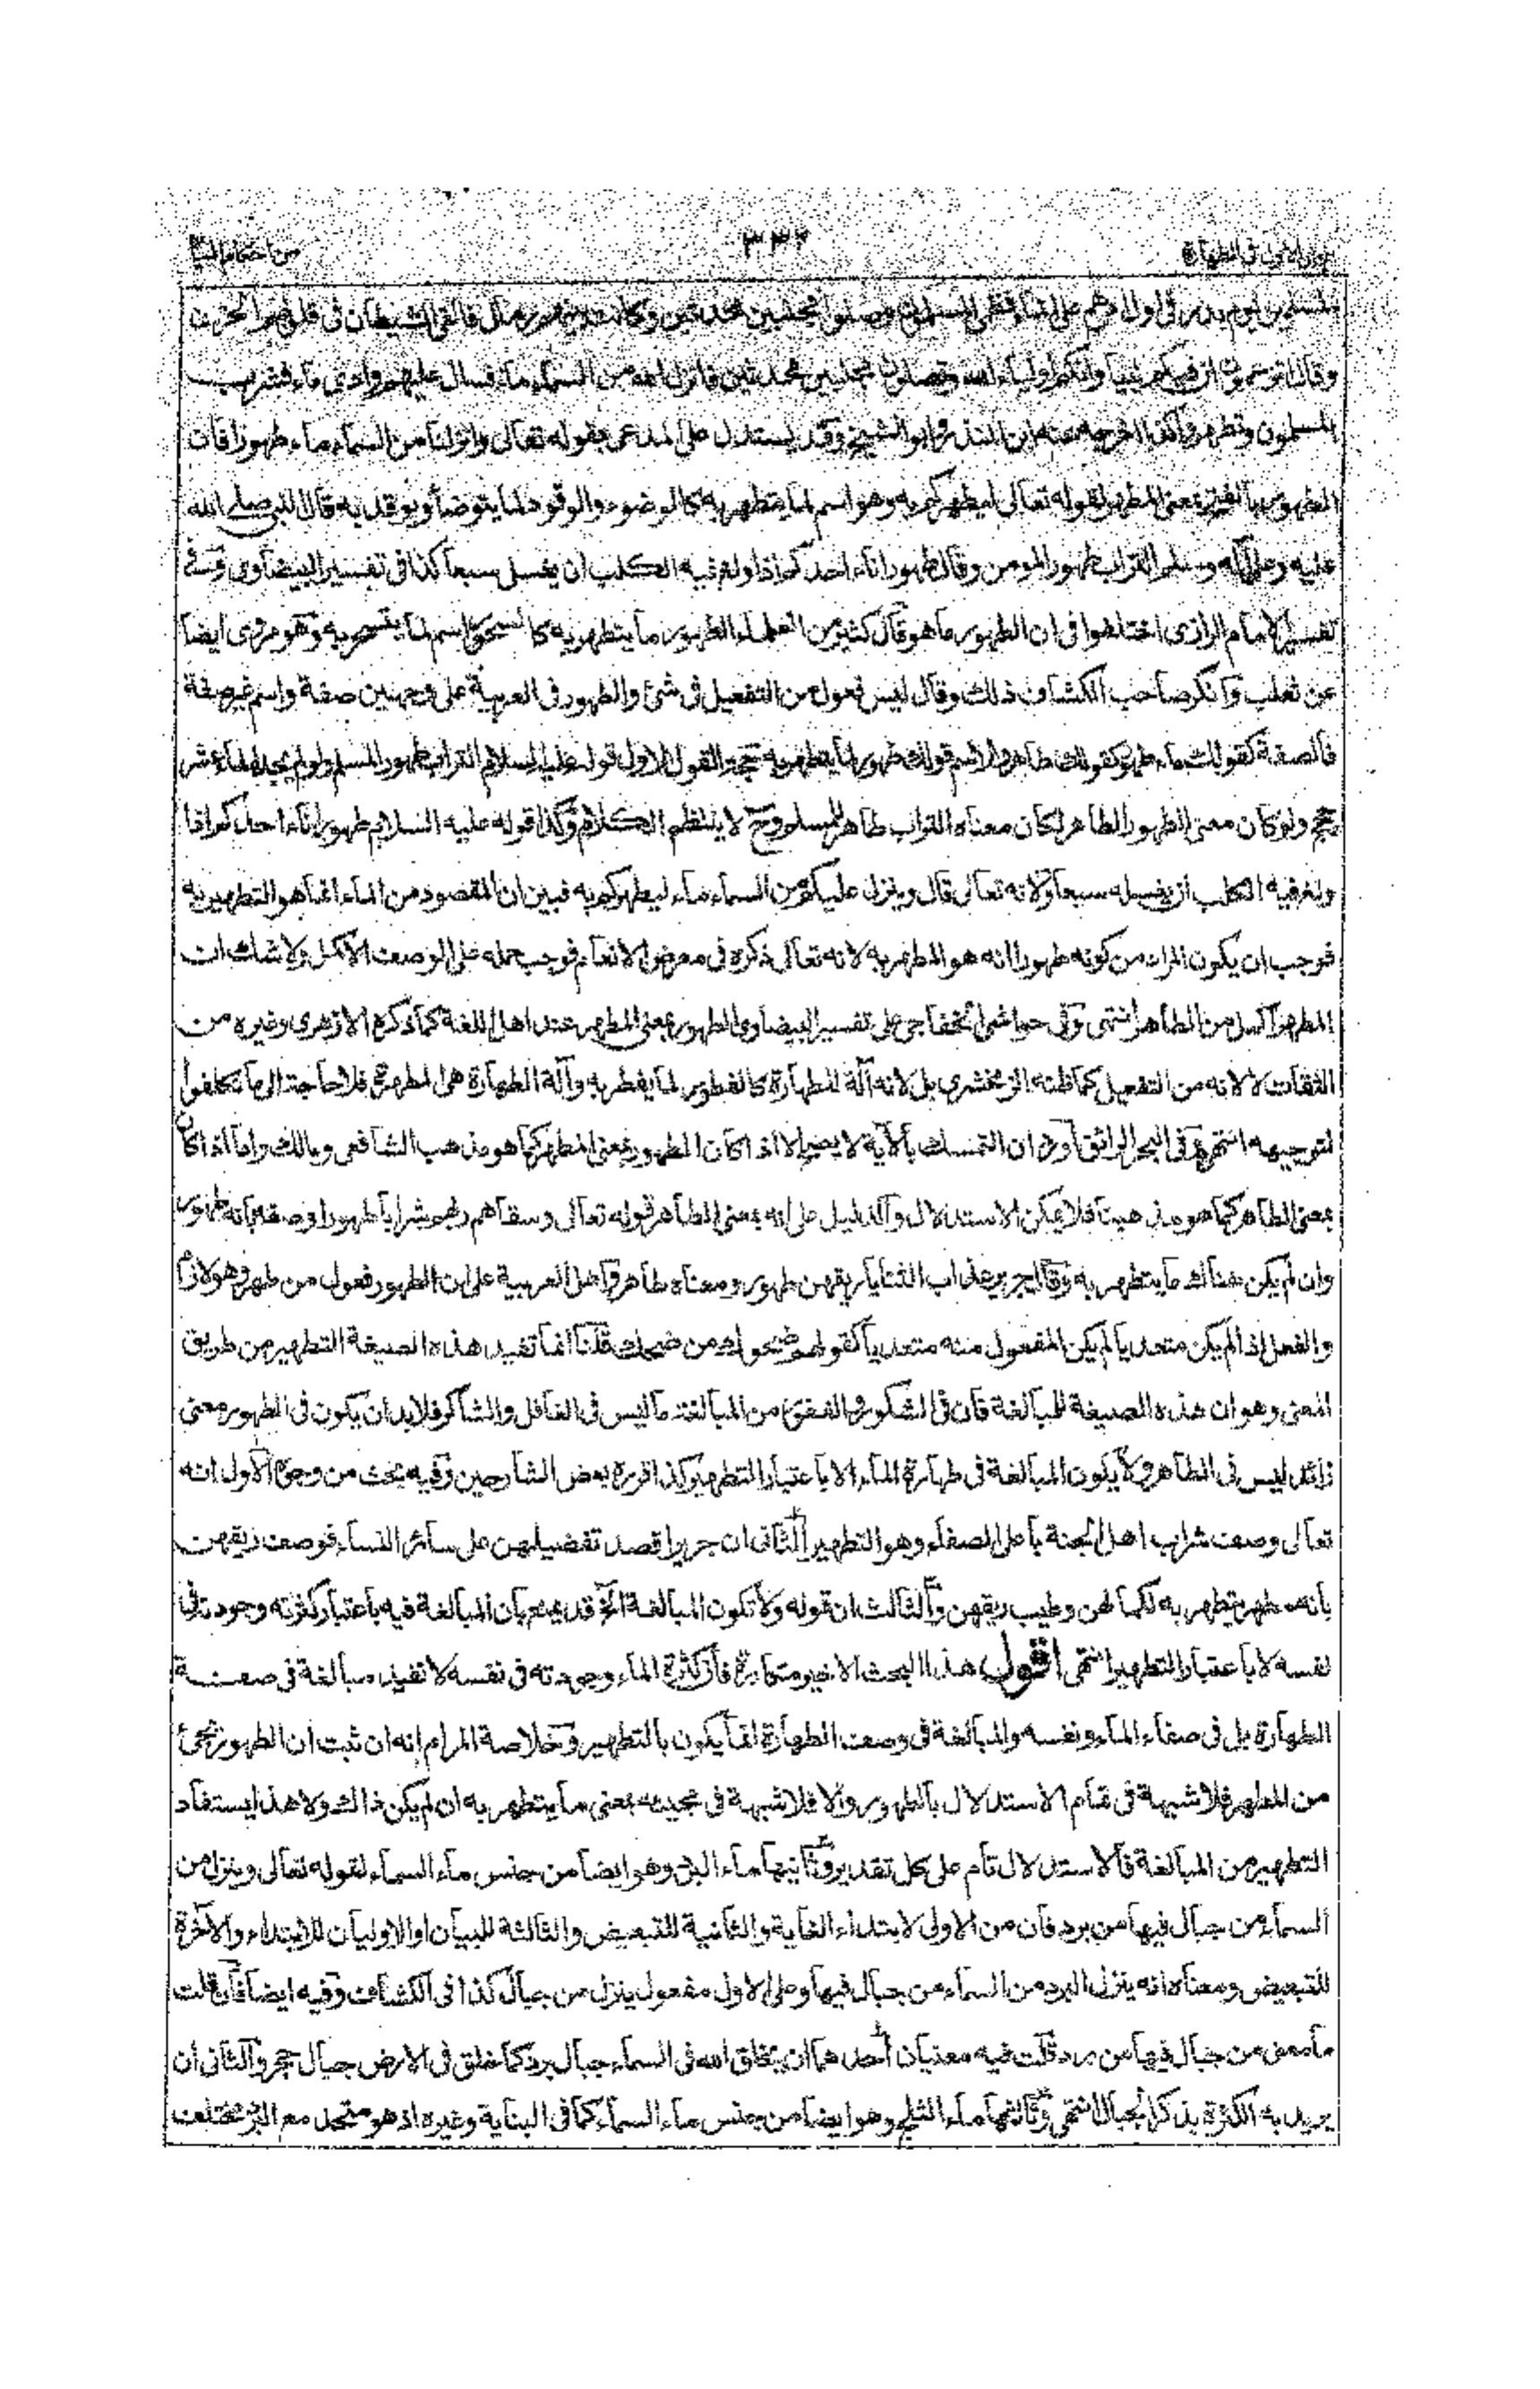 في الطهارة
٣٣٢
من احكام المياه
المسلمين يوم بدر في اول امرهم على الماء فظمئ المسلمون وصلوا مجنبين محدثين وكانت بينهم رمال فالقى الشيطان في قلوبهم الحزن
وقال اتزعمون ان فيكم نبيا وانكم اولياء الله وتصلون مجنبين محدثين فانزل الله من السماء ماء فسال عليهم وادى ماء فشرب
المسلمون وتطهروا كذا اخرجه عنه ابن المنذر وابو الشيخ وقد يستدل على المدعى بقوله تعالى وانزلنا من السماء ماء طهورا فان
الطهور بالفتح بمعنى المطهر لقوله تعالى ليطهركم به وهو اسم لما يتطهر به كالوضوء والوقود لما يتوضأ ويوقد به قال النبي صلى الله
عليه وعلى آله وسلم التراب طهور المومن وقال طهور اناء احدكم اذا ولغ فيه الكلب ان يغسل سبعا كذا في تفسير البيضاوى وفي
تفسير الامام الرازى اختلفوا في ان الطهور ما هو قال كثير من العلماء الطهور ما يتطهر به كالسحور اسم لما يتسحر به وهو مروى ايضا
عن ثعلب وانكر صاحب الكشاف ذلك وقال ليس فعول من التفعيل في شئ والطهور في العربية على وجهين صفة واسم غير صفة
فالصفة كقولك ماء طهور كقولك طاهر والاسم قولك طهور لما يتطهر به حجة القول الاول قوله عليه السلام التراب طهور المسلم ولو لم يجد الماء عشر
حجج ولو كان معنى الطهور الطاهر لكان معناه التراب طاهر للمسلم وح لا ينتظم الكلام وكذا قوله عليه السلام طهور اناء احدكم اذا
ولغ فيه الكلب ان يغسله سبعا ولانه تعالى قال وينزل عليكم من السماء ماء ليطهركم به فبين ان المقصود من الماء انما هو التطهير به
فوجب ان يكون المراد من كونه طهورا انه هو المطهر به لانه تعالى ذكره في معرض الانعام فوجب حمله على الوصف الاكمل ولا شك ان
المطهر اكمل من الطاهر انتهى وفي حواشى الخفاجي على تفسير البيضاوى الطهور بمعنى المطهر عند اهل اللغة كما ذكره الازهرى وغيره من
الثقات لا لانه من التفعيل كما ظنه الزمخشرى بل لانه آلة للطهارة كالفطور لما يفطر به وآلة الطهارة هى المطهرة فلا حاجة الى ما تكلفوا
لتوجيهه انتهى وفي البحر الرائق اورد ان التمسك بالآية لا يصح الا اذا كان الطهور بمعنى المطهر كما هو مذهب الشافعى ومالك واما اذا كان
بمعنى الطاهر كما هو مذهبنا فلا يمكن الاستدلال والدليل على انه بمعنى الطاهر قوله تعالى وسقاهم ربهم شرابا طهورا وصفه بانه طهور
وان لم يكن هناك ما يتطهر به وقال جرير عذاب الثنايا ريقهن طهور ومعناه طاهر واهل العربية على ان الطهور فعول من طهر وهو لازم
والفعل اذا لم يكن متعديا لم يكن المفعول منه متعديا كقولهم ضحوك من ضحك قلنا انما تفيد هذه الصيغة التطهير من طريق
المعنى وهو ان هذه الصيغة للمبالغة فان في الشكور والغفور من المبالغة ما ليس في الغافل والشاكر فلا بد ان يكون في الطهور معنى
زائد ليس في الطاهر ولا يكون المبالغة في طهارة الماء الا باعتبار التطهير كذا قرره بعض الشارحين وفيه بحث من وجوه الاول انه
تعالى وصف شراب اهل الجنة باعلى الصفات وهو التطهير الثانى ان جريرا قصد تفضيلهن على سائر النساء فوصف ريقهن
بانه مطهر يتطهر به لكمالهن وطيب ريقهن والثالث ان قوله ولا تكون المبالغة الخ قد يمنع بان المبالغة فيه باعتبار كثرته وجودته في
نفسه لا باعتبار التطهير انتهى اقول هذا البحث الاخير فان كثرة الماء وجودته في نفسه لا تفيد مبالغة في صفة
الطهارة بل في صفاء الماء ونفسه والمبالغة في وصف الطهارة انما يكون بالتطهير وخلاصة المرام انه ان ثبت ان الطهور يجئ
من المطهر فلا شبهة في تمام الاستدلال بالطهور والا فلا شبهة في مجيئه بمعنى ما يتطهر به ان لم يكن ذلك ولا هذا يستفاد
التطهير من المبالغة فالاستدلال تام على كل تقدير وثانيها ماء البرد وهو ايضا من جنس ماء السماء لقوله تعالى وينزل من
السماء من جبال فيها من برد فان من الاولى لابتداء الغاية والثانية للتبعيض والثالثة للبيان او الاوليان للابتداء والآخرة
للتبعيض ومعناه انه ينزل البرد من السماء من جبال فيها وعلى الاول مفعول ينزل من جبال كذا في الكشاف وفيه ايضا فان قلت
ما معنى من جبال فيها من برد قلت فيه معنيان احدهما ان يخلق الله في السماء جبال برد كما خلق في الارض جبال حجر والثانى ان
يريد به الكثرة بذكر الجبال انتهى وثالثها ماء الثلج وهو ايضا من جنس ماء السماء كما في البناية وغيره اذ هو متحد مع البرد مختلف